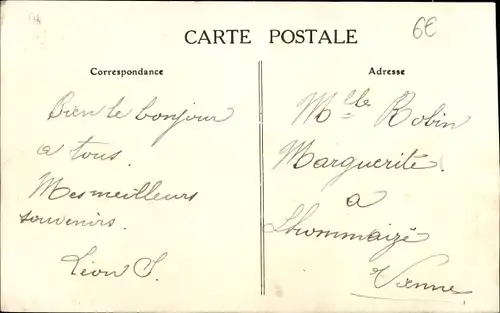 6€
CARTE POSTALE
Correspondance
Bien le bonjour
a tous.
Mes meilleurs
souvenirs.
Léon S.
Adresse
Mlle Robin
Marguerite.
a
Lhommaizé
Vienne